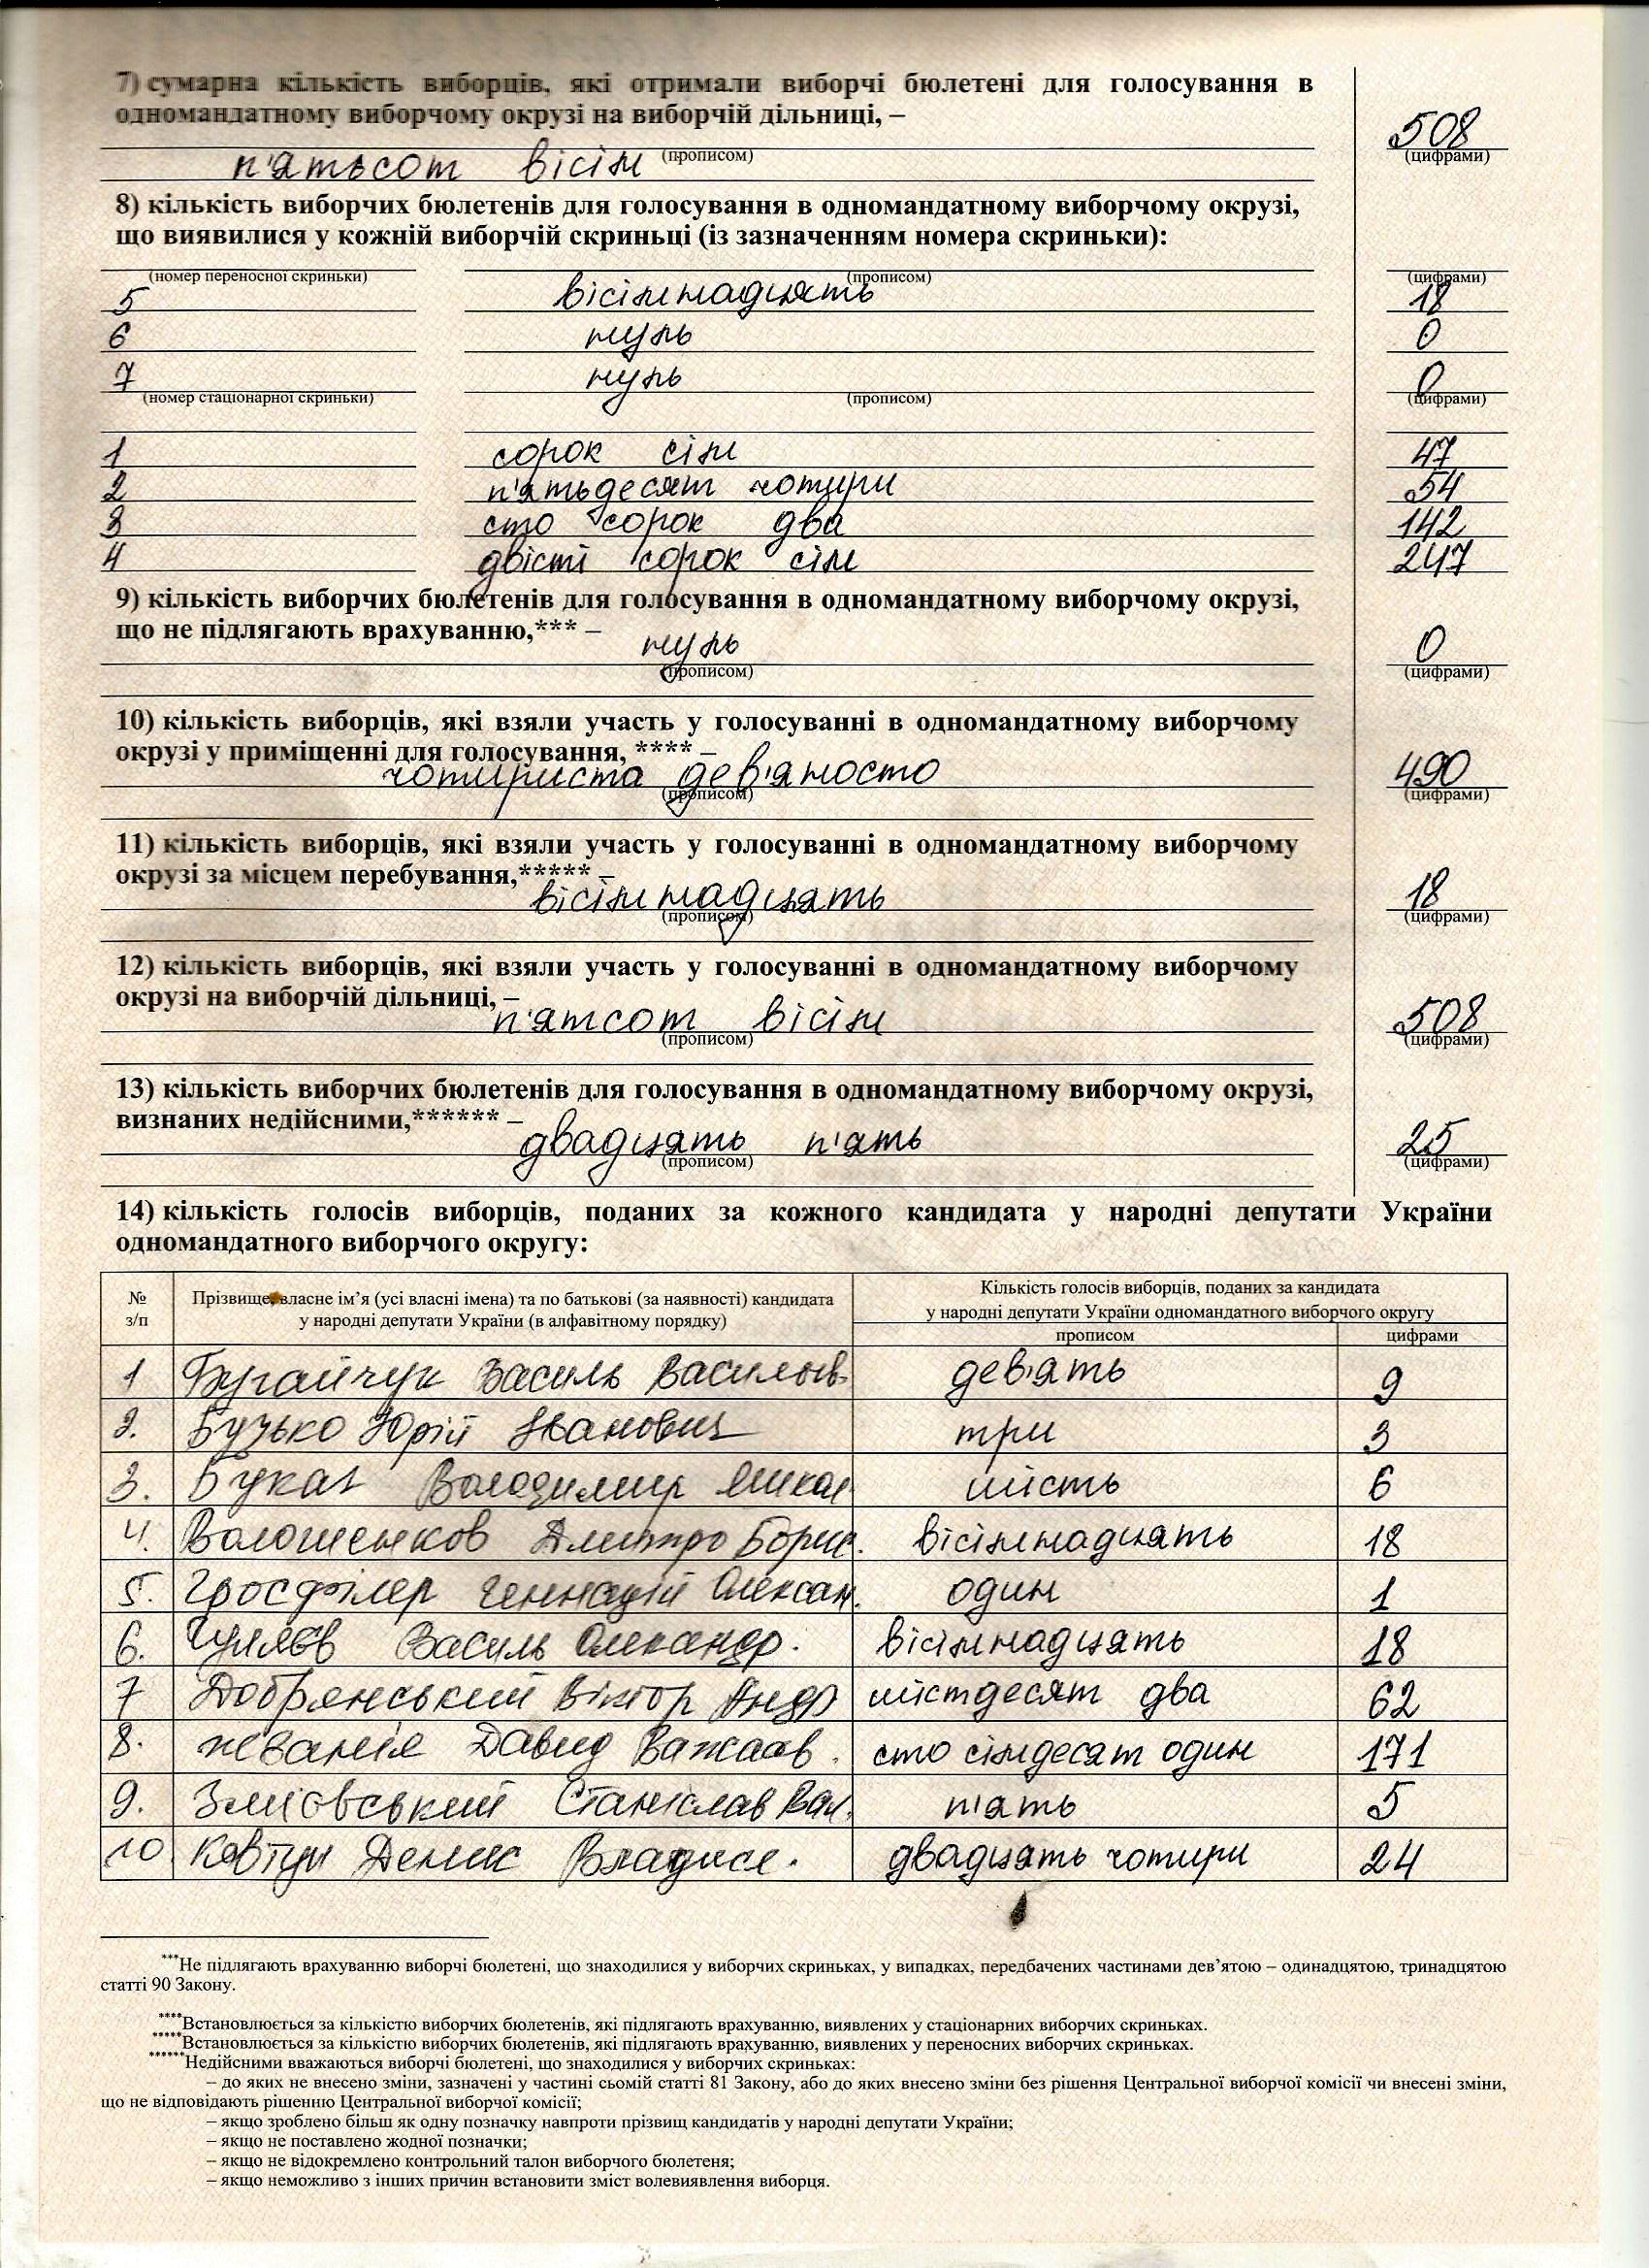 7) сумарна кількість виборців, які отримали виборчі бюлетені для голосування в
одномандатному виборчому окрузі на виборчій дільниці, –
508
(прописом) (цифрами)
п'ятьсот вісім
8) кількість виборчих бюлетенів для голосування в одномандатному виборчому окрузі,
що виявилися у кожній виборчій скриньці (із зазначенням номера скриньки):
(номер переносної скриньки) (прописом) (цифрами)
5 вісімнадцять 18
6 нуль 0
7 нуль 0
(номер стаціонарної скриньки) (прописом) (цифрами)
1 сорок сім 47
2 п'ятьдесят чотири 54
3 сто сорок два 142
4 двісті сорок сім 247
9) кількість виборчих бюлетенів для голосування в одномандатному виборчому окрузі,
що не підлягають врахуванню,*** –
нуль 0
(прописом) (цифрами)
10) кількість виборців, які взяли участь у голосуванні в одномандатному виборчому
окрузі у приміщенні для голосування, **** –
чотириста дев'яносто 490
(прописом) (цифрами)
11) кількість виборців, які взяли участь у голосуванні в одномандатному виборчому
окрузі за місцем перебування,***** –
вісімнадцять 18
(прописом) (цифрами)
12) кількість виборців, які взяли участь у голосуванні в одномандатному виборчому
окрузі на виборчій дільниці, –
п'ятсот вісім 508
(прописом) (цифрами)
13) кількість виборчих бюлетенів для голосування в одномандатному виборчому окрузі,
визнаних недійсними,****** –
двадцять п'ять 25
(прописом) (цифрами)
14) кількість голосів виборців, поданих за кожного кандидата у народні депутати України
одномандатного виборчого округу:
№ з/п
Прізвище, власне ім’я (усі власні імена) та по батькові (за наявності) кандидата
у народні депутати України (в алфавітному порядку)
Кількість голосів виборців, поданих за кандидата
у народні депутати України одномандатного виборчого округу
прописом цифрами
1 Бугайчук Василь Васильов. дев'ять 9
2. Бузько Юрій Іванович три 3
3. Букат Володимир Микол шість 6
4. Волошенков Дмитро Борис. вісімнадцять 18
5. Гросфілер Геннадій Олексан. один 1
6. Гуляєв Василь Олександр. вісімнадцять 18
7 Добрянський Віктор Андр шістдесят два 62
8. Жванія Давид Важаов. сто сімдесят один 171
9. Змієвський Станіслав Вал. п'ять 5
10 Ковтун Денис Владисл. двадцять чотири 24
***Не підлягають врахуванню виборчі бюлетені, що знаходилися у виборчих скриньках, у випадках, передбачених частинами дев’ятою – одинадцятою, тринадцятою
статті 90 Закону.
****Встановлюється за кількістю виборчих бюлетенів, які підлягають врахуванню, виявлених у стаціонарних виборчих скриньках.
*****Встановлюється за кількістю виборчих бюлетенів, які підлягають врахуванню, виявлених у переносних виборчих скриньках.
******Недійсними вважаються виборчі бюлетені, що знаходилися у виборчих скриньках:
– до яких не внесено зміни, зазначені у частині сьомій статті 81 Закону, або до яких внесено зміни без рішення Центральної виборчої комісії чи внесені зміни,
що не відповідають рішенню Центральної виборчої комісії;
– якщо зроблено більш як одну позначку навпроти прізвищ кандидатів у народні депутати України;
– якщо не поставлено жодної позначки;
– якщо не відокремлено контрольний талон виборчого бюлетеня;
– якщо неможливо з інших причин встановити зміст волевиявлення виборця.